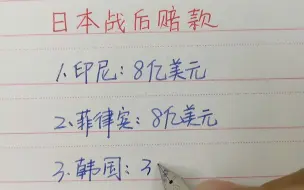 日本战后赔款
1.印尼：8亿美元
2.菲律宾：8亿美元
3.韩国：3